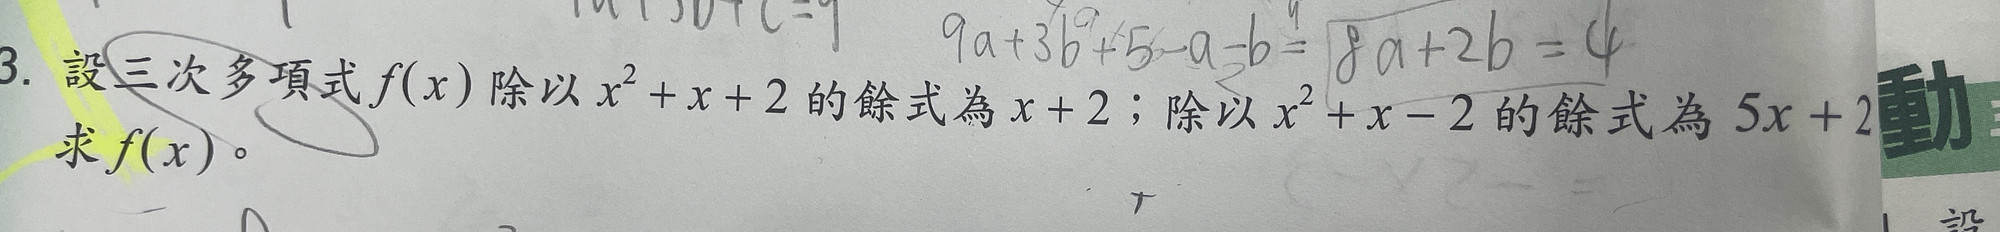 9a+3b+5-a-b= 8a+2b=4
3. 設三次多項式 f(x) 除以 x²+x+2 的餘式為 x+2；除以 x²+x-2 的餘式為 5x+2
求 f(x)。
動
設